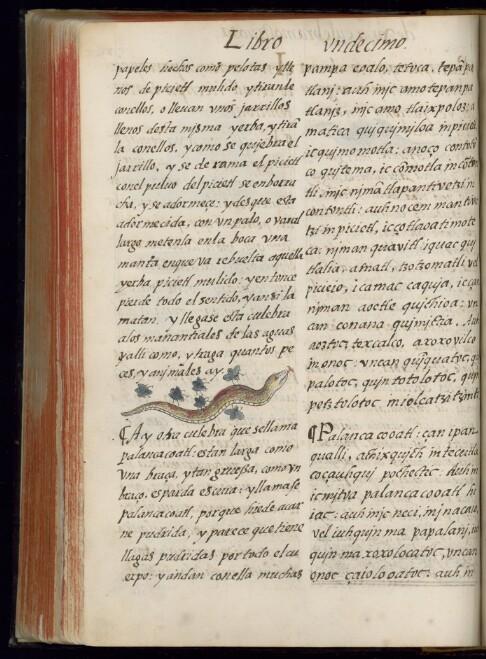 Libro vndecimo.
papeles hechos como pelotas y lle
nos de picietl molido, y tiranle
conellos, o lleuan vnos jarrillos
llenos desta misma yerba, y tirã
la conellos, y como se quiebra el
jarrillo, y se derama el picietl
con el puluo del picietl se enborra
cha, y se adormece: y desque esta
adormecida, con vn palo, o varal
largo metenla en la boca vna
manta enque va rebuelta aquella
yerba picietl molido: y entonce
pierde todo el sentido, y ansi la
matan. y llegase esta culebra
alos manantiales de las aguas
y alli come, y traga quantos pe
ces, y animales ay.
¶ Ay otra culebra que se llama
palancacoatl: es tan larga como
vna braça, y tan gruessa, como vn
braço. es parda escura: y llamase
palancacoatl, porque hiede a car
ne pudrida, y parece que tiene
llagas pudridas por todo el cu
erpo: y andan con ella muchas
pampa eoalo, tetoca, tepã
tlani: auh injc amo tepanpa
tlanjz, injc amo tlaixpoloz: a
matica quiqujmjloa in picietl
ic qujmomotla: anoço contonco
co qujtema, ic cõmotla in cõton
tli. injc njmã tlapantivetzi in
contontli: auh noceman mantive
tzi in picietl, ic çotlaoatimote
ca: njman quavitl
tlalia, amatl, tzotzomatli
picieio, icamac caquja, ic
njman aoctle qujthioa: vn
can conana qujmjctia. Auh
aoztoc, texcalco, axoxovilco
in onoc: vncan
palotoc, qujn totolotoc,
petztolotoc
¶ Palancacooatl: çan ipan
qualli, achi
cocauhquj pochectic. Auh in
ic mjtva palancacooatl
iac: auh injc neci, in jnacaio,
vel iuhqujn ma papalanj,
qujn ma xoxolocatoc, vncan
onoc çaiolooatoc: auh in